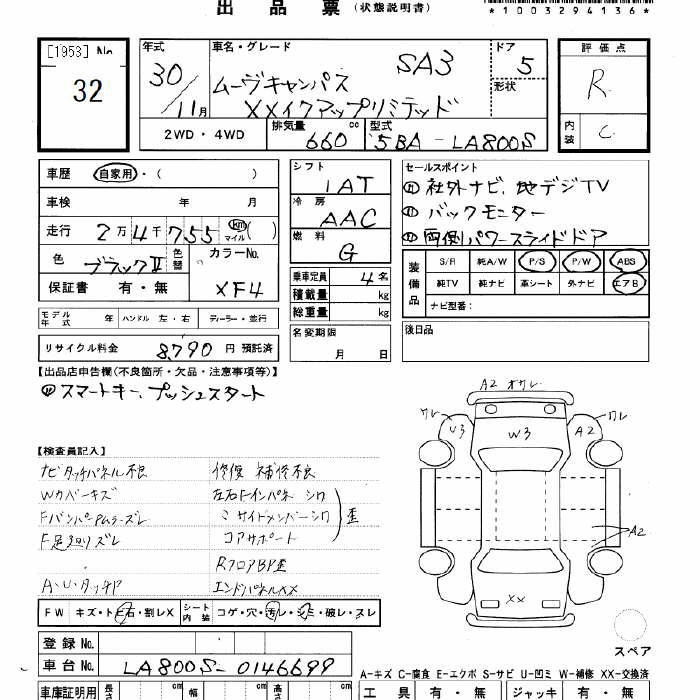 出品票(状態説明書)
*1003294136*
[1953] No
32
年式 30/11月
車名・グレード ムーヴキャンバス SA3
XXメイクアップリミテッド
ドア 5
形状
2WD・4WD
排気量 660 cc
型式 5BA-LA800S
評価点 R
内装 C
車歴 自家用・( )
車検 年 月
走行 2万4千755 km マイル( )
色 ブラックⅡ 色替
カラーNo. XF4
保証書 有・無
シフト IAT
冷房 AAC
燃料 G
乗車定員 4名
積載量 kg
総重量 kg
セールスポイント
社外ナビ、地デジTV
バックモニター
両側パワースライドドア
装備品
S/R 純A/W P/S P/W ABS
純TV 純ナビ 革シート 外ナビ エアB
ナビ型番:
モデル年式 年 ハンドル 左・右 ディーラー・並行
名変期限 月 日
後日品
リサイクル料金 8,790 円 預託済
【出品店申告欄(不良箇所・欠品・注意事項等)】
スマートキー、プッシュスタート
【検査員記入】
ナビタッチパネル不良 修復 補修不良
Wカバーキズ 左右Fインパネ シワ
ミ サイドメンバーシワ 歪
F足廻りズレ コアサポート
RフロアBP歪
エンドパネルXX
FW キズ・ト石・割レX
シート内装 コゲ・穴・汚レ・シミ・破レ・スレ
登録No.
車台No. LA800S-0146699
車庫証明用 長さ cm 幅 cm 高さ cm
A2
ワレ U3 W3 A2 ワレ
A2
XX
スペア
A-キズ C-腐食 E-エクボ S-サビ U-凹ミ W-補修 XX-交換済
工具 有・無 ジャッキ 有・無